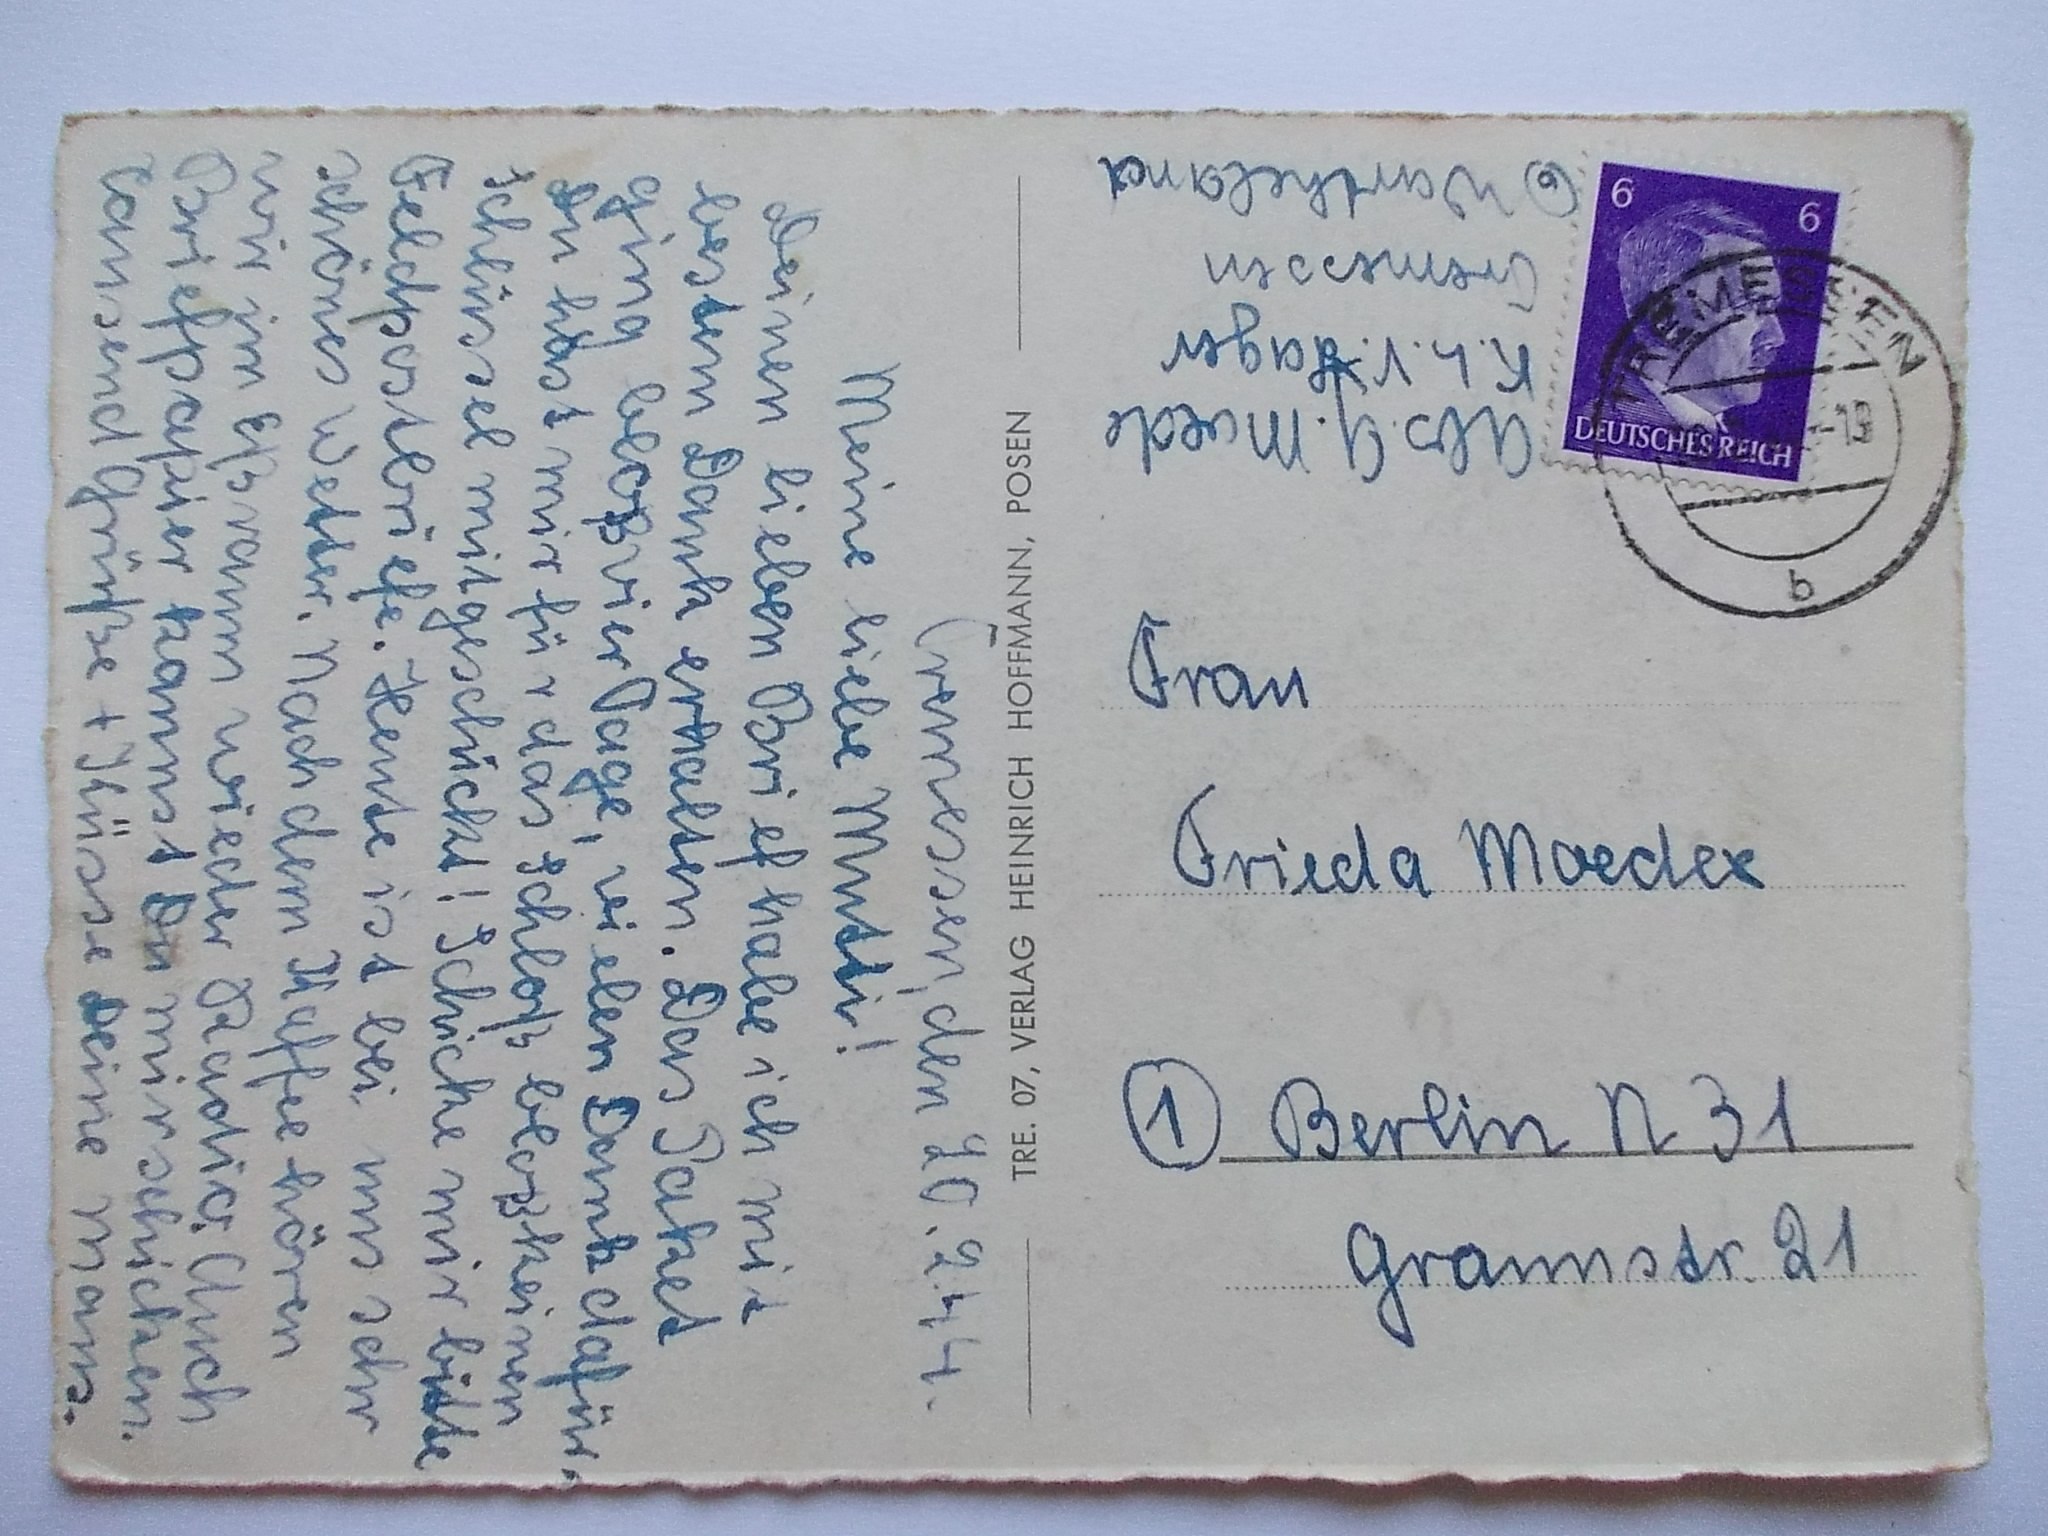 Tremessen, den 20. 2. 44.
Meine liebe Mutti!
Deinen lieben Brief habe ich mit
bestem Dank erhalten. Das Paket
ging bloß vier Tage, vielen Dank dafür,
Du hast mir für das Schloß bloß keinen
Schlüssel mitgeschickt! Schicke mir bitte
Feldpostbriefe. Heute ist bei uns sehr
schönes Wetter. Nach dem Kaffee hören
wir im Eßraum wieder Radio. Auch
Briefpapier kannst Du mir schicken.
tausend Grüße + Küsse Deine Mans.
TRE. 07, VERLAG HEINRICH HOFFMANN, POSEN
Abs. G. Maede
K. L. V. Lager
Tremessen
(6) Wartheland
6 6
DEUTSCHES REICH
TREMESSEN
-19
b
Frau
Frieda Maeder
(1) Berlin N 31
Graunstr. 21